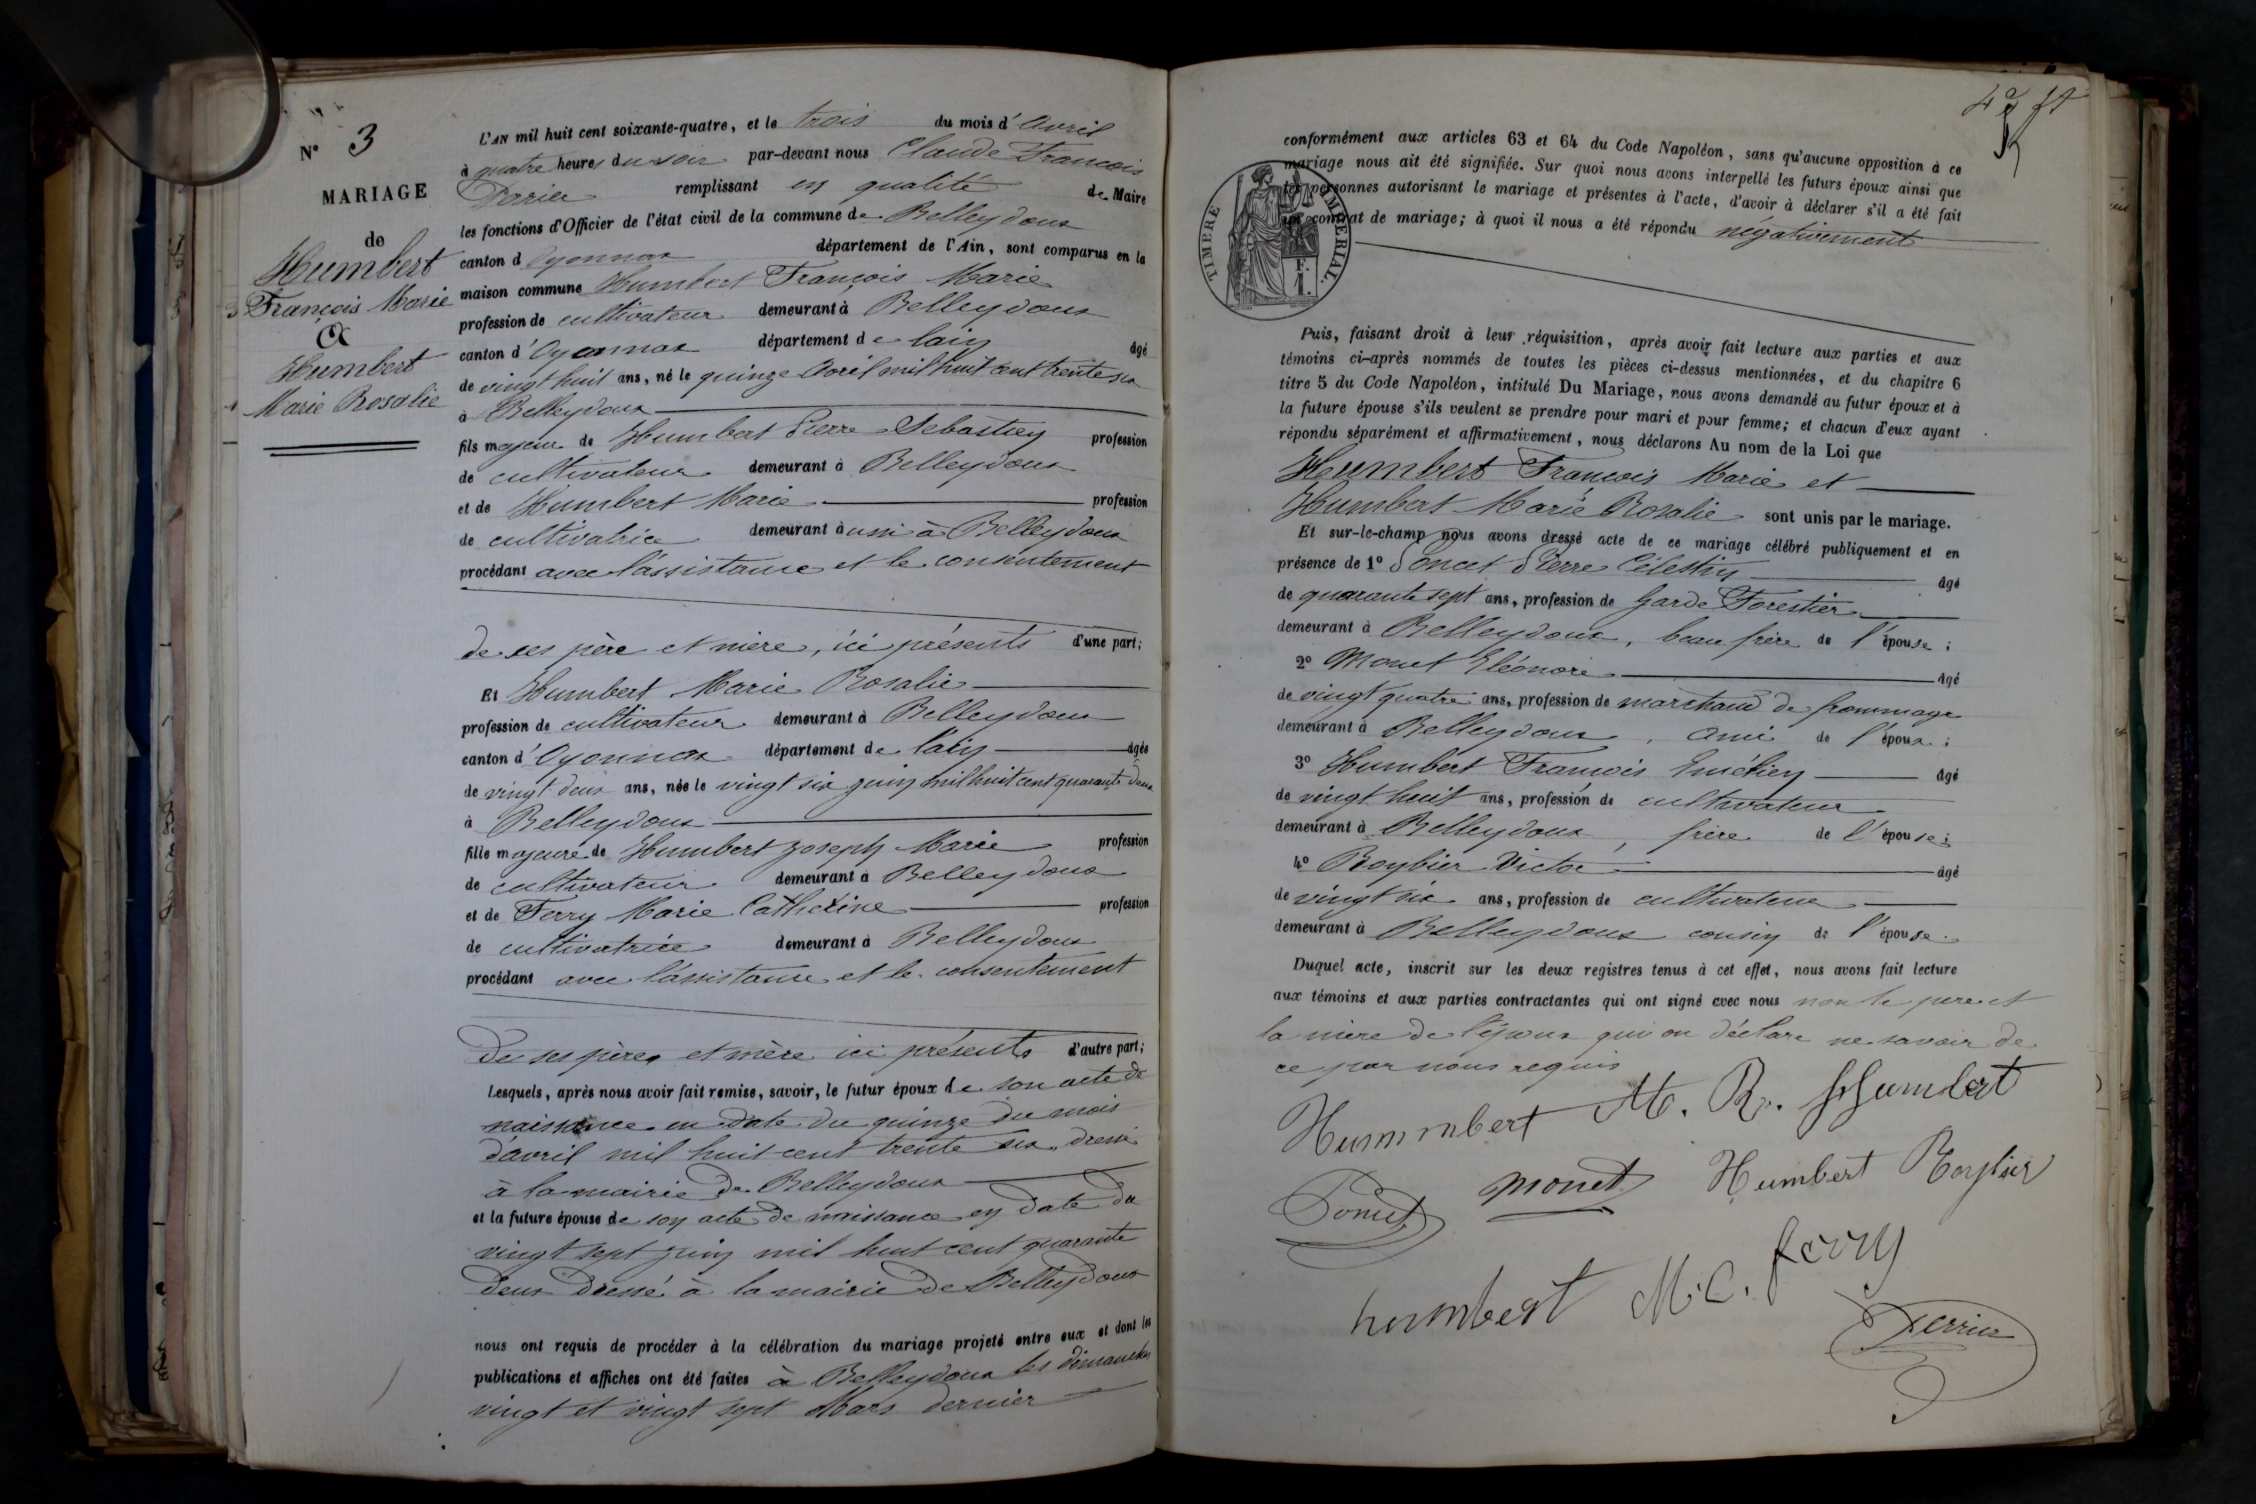 N° 3
MARIAGE
de
Humbert
François Marie
&
Humbert
Marie Rosalie
L'AN mil huit cent soixante-quatre, et le trois du mois d'Avril
à quatre heures du soir par-devant nous Claude François
remplissant en qualité de Maire
les fonctions d'Officier de l'état civil de la commune de Belleydoux
canton d'Oyonnax département de l'Ain, sont comparus en la
maison commune Humbert François Marie
profession de cultivateur demeurant à Belleydoux
canton d'Oyonnax département de lain âgé
de vingt huit ans, né le quinze Avril mil huit cent trente six
à Belleydoux
fils majeur de Humbert Pierre Sébastien profession
de cultivateur demeurant à Belleydoux
et de Humbert Marie profession
de cultivatrice demeurant à à Belleydoux
procédant avec l'assistance et le consentement
de ses père et mère, ici présents d'une part;
Et Humbert Marie Rosalie
profession de cultivateur demeurant à Belleydoux
canton d'Oyonnax département de l'ain agée
de vingt deux ans, née le vingt six juin mil huit cent quarante deux
à Belleydoux
fille majeure de Humbert Joseph Marie profession
de cultivateur demeurant à Belleydoux
et de Ferry Marie Catherine profession
de cultivatrice demeurant à Belleydoux
procédant avec l'assistance et le consentement
de ses père et mère ici présents d'autre part;
Lesquels, après nous avoir fait remise, savoir, le futur époux de son acte de
naissance en date du quinze du mois
d'avril mil huit cent trente six dressé
à la mairie de Belleydoux
et la future épouse de son acte de naissance en date du
vingt sept juin mil huit cent quarante
deux dressé à la mairie de Belleydoux
nous ont requis de procéder à la célébration du mariage projeté entre eux et dont les
publications et affiches ont été faites à Belleydoux les dimanches
vingt et vingt sept Mars dernier
conformément aux articles 63 et 64 du Code Napoléon, sans qu'aucune opposition à ce
mariage nous ait été signifiée. Sur quoi nous avons interpellé les futurs époux ainsi que
les personnes autorisant le mariage et présentes à l'acte, d'avoir à déclarer s'il a été fait
un contrat de mariage; à quoi il nous a été répondu négativement
TIMBRE IMPÉRIAL.
Puis, faisant droit à leur réquisition, après avoir fait lecture aux parties et aux
témoins ci-après nommés de toutes les pièces ci-dessus mentionnées, et du chapitre 6
titre 5 du Code Napoléon, intitulé Du Mariage, nous avons demandé au futur époux et à
la future épouse s'ils veulent se prendre pour mari et pour femme; et chacun d'eux ayant
répondu séparément et affirmativement, nous déclarons Au nom de la Loi que
Humbert François Marie et
Humbert Marie Rosalie sont unis par le mariage.
Et sur-le-champ nous avons dressé acte de ce mariage célébré publiquement et en
présence de 1° Poncet Pierre Célestin âgé
de quarante sept ans, profession de Garde Forestier
demeurant à Belleydoux, beau frère de l'épouse;
2° Monet Eléonore âgé
de vingt quatre ans, profession de marchand de frommage
demeurant à Belleydoux, ami de l'époux;
3° Humbert François âgé
de vingt huit ans, profession de cultivateur
demeurant à Belleydoux, frère de l'épouse;
4° Roybier Victor âgé
de vingt six ans, profession de cultivateur
demeurant à Belleydoux cousin de l'épouse.
Duquel acte, inscrit sur les deux registres tenus à cet effet, nous avons fait lecture
aux témoins et aux parties contractantes qui ont signé avec nous non le pere et
la mère de l'époux qui on déclaré ne savoir de
ce par nous requis
Hummbert M. R. Humbert
Poncet Monet Humbert Roybier
humbert M. C. ferry